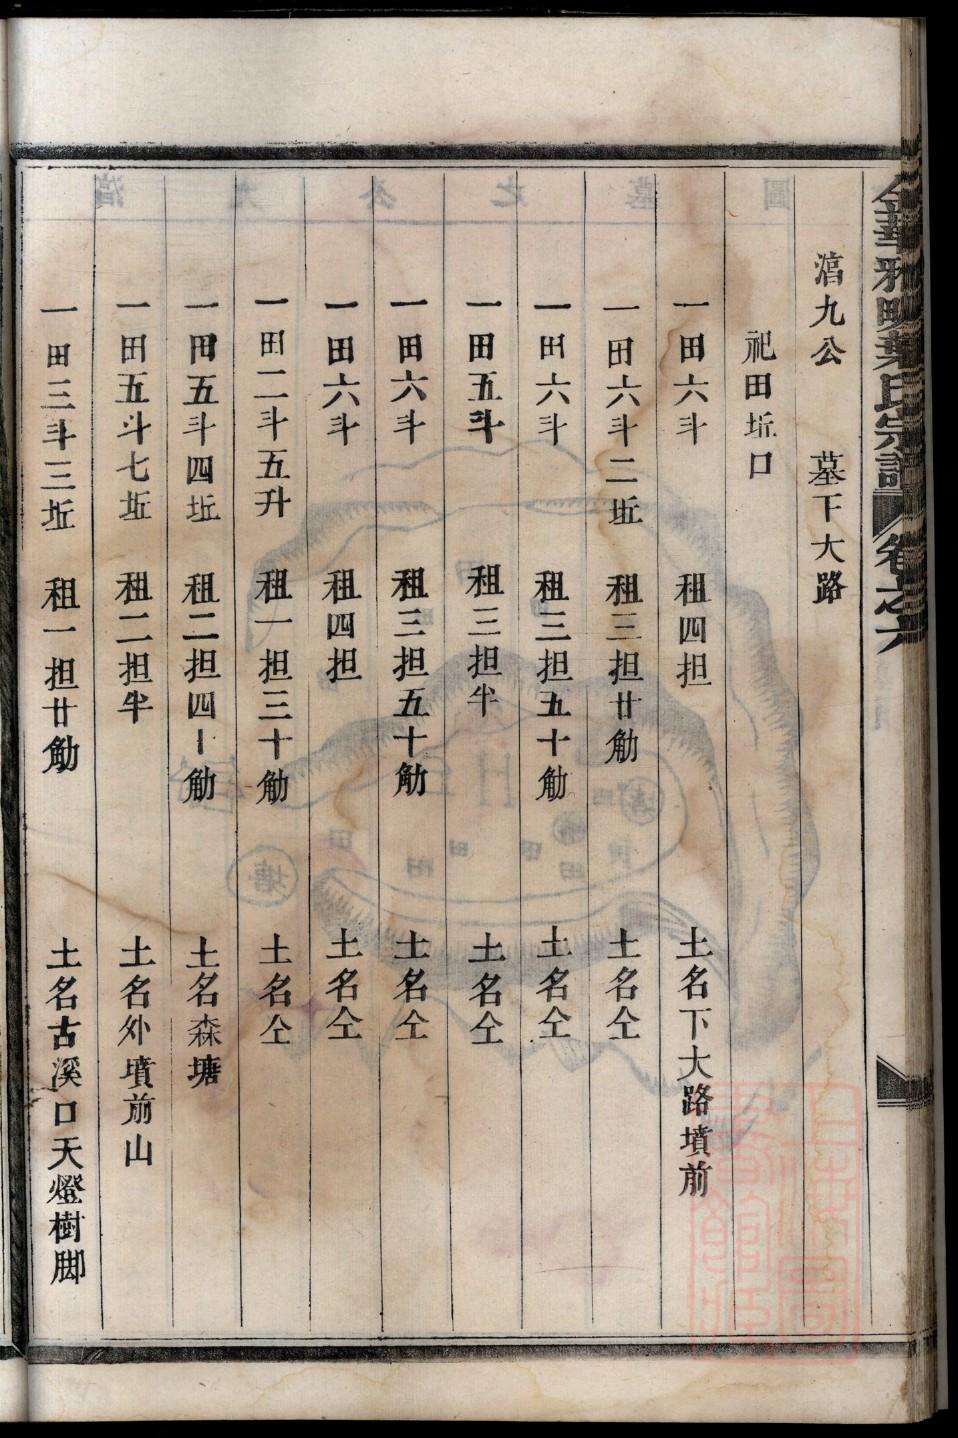 金華雅畈葉氏宗譜 卷之六
九公 墓下大路
祀田坵口
一田六斗 租四担 土名下大路墳前
一田六斗二坵 租三担廿觔 土名仝
一田六斗 租三担五十觔 土名仝
一田五斗 租三担半 土名仝
一田六斗 租三担五十觔 土名仝
一田六斗 租四担 土名仝
一田二斗五升 租一担三十觔 土名仝
一田五斗四坵 租二担四十觔 土名森塘
一田五斗七坵 租二担半 土名外墳前山
一田三斗三坵 租一担廿觔 土名古溪口天燈樹脚